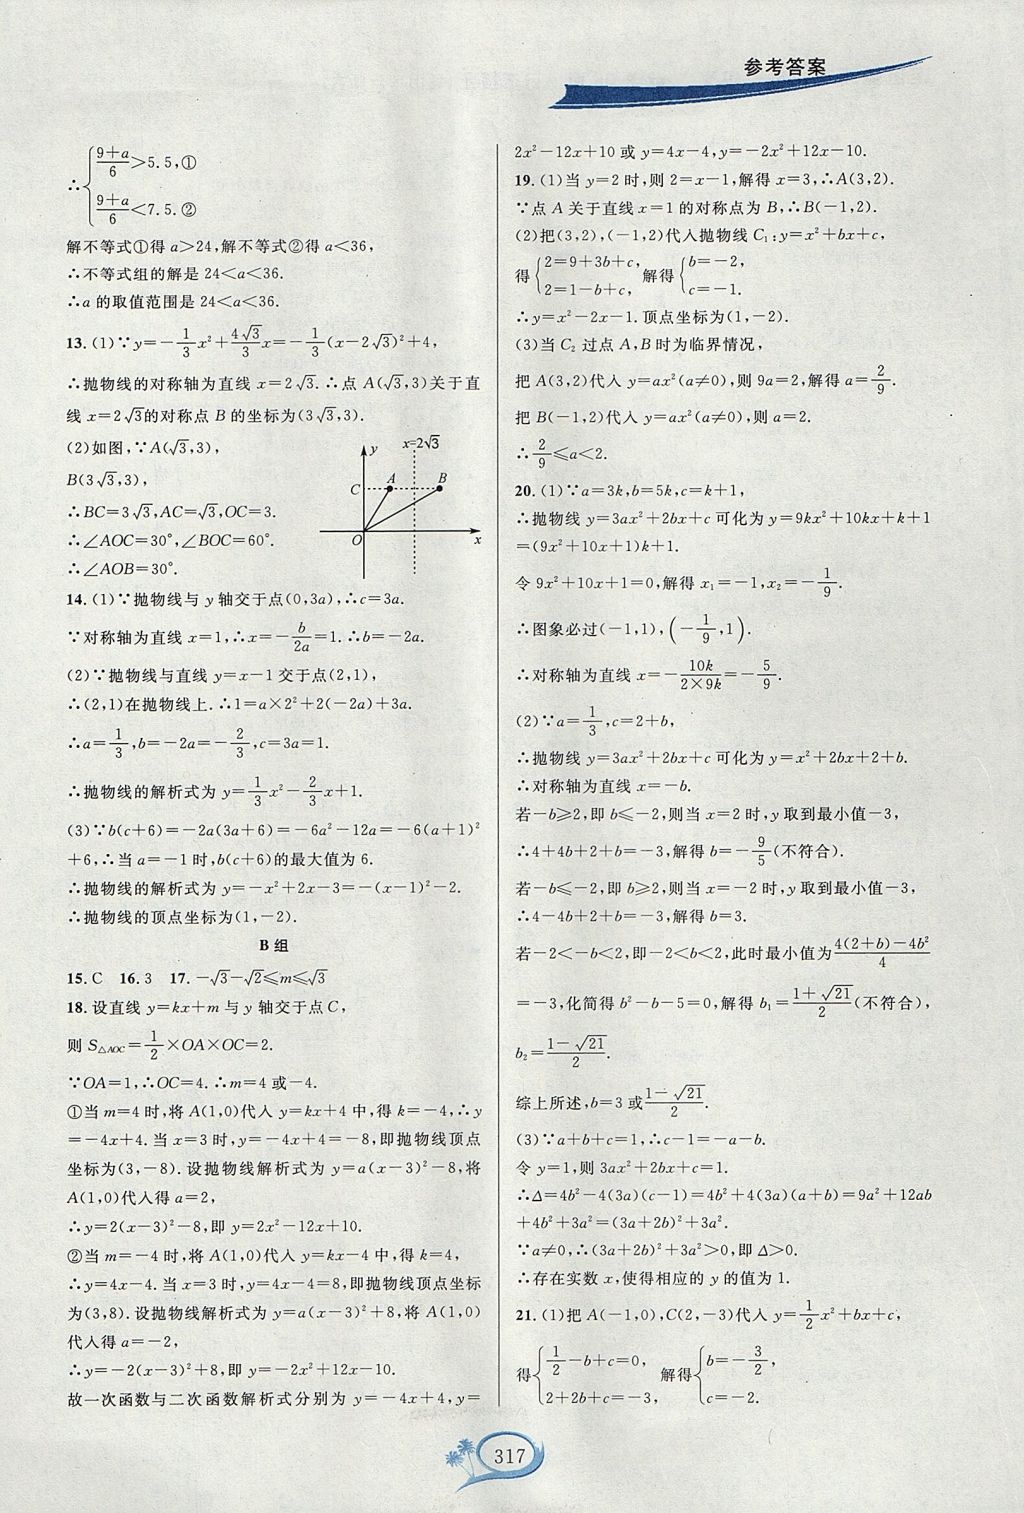 参考答案
∴{(9+a)/6>5.5,①
(9+a)/6<7.5.②
解不等式①得a>24,解不等式②得a<36,
∴不等式组的解是24<a<36.
∴a的取值范围是24<a<36.
13.(1)∵y=-1/3x²+4√3/3x=-1/3(x-2√3)²+4,
∴抛物线的对称轴为直线x=2√3.∴点A(√3,3)关于直
线x=2√3的对称点B的坐标为(3√3,3).
(2)如图,∵A(√3,3),
B(3√3,3),
∴BC=3√3,AC=√3,OC=3.
∴∠AOC=30°,∠BOC=60°.
∴∠AOB=30°.
y
x=2√3
C
A
B
O
x
14.(1)∵抛物线与y轴交于点(0,3a),∴c=3a.
∵对称轴为直线x=1,∴x=-b/2a=1.∴b=-2a.
(2)∵抛物线与直线y=x-1交于点(2,1),
∴(2,1)在抛物线上.∴1=a×2²+2(-2a)+3a.
∴a=1/3,b=-2a=-2/3,c=3a=1.
∴抛物线的解析式为y=1/3x²-2/3x+1.
(3)∵b(c+6)=-2a(3a+6)=-6a²-12a=-6(a+1)²
+6,∴当a=-1时,b(c+6)的最大值为6.
∴抛物线的解析式为y=-x²+2x-3=-(x-1)²-2.
∴抛物线的顶点坐标为(1,-2).
B组
15.C 16.3 17.-√3-√2≤m≤√3
18.设直线y=kx+m与y轴交于点C,
则S△AOC=1/2×OA×OC=2.
∵OA=1,∴OC=4.∴m=4或-4.
①当m=4时,将A(1,0)代入y=kx+4中,得k=-4,∴y
=-4x+4.当x=3时,y=-4x+4=-8,即抛物线顶点
坐标为(3,-8).设抛物线解析式为y=a(x-3)²-8,将
A(1,0)代入得a=2,
∴y=2(x-3)²-8,即y=2x²-12x+10.
②当m=-4时,将A(1,0)代入y=kx-4中,得k=4,
∴y=4x-4.当x=3时,y=4x-4=8,即抛物线顶点坐标
为(3,8).设抛物线解析式为y=a(x-3)²+8,将A(1,0)
代入得a=-2,
∴y=-2(x-3)²+8,即y=-2x²+12x-10.
故一次函数与二次函数解析式分别为y=-4x+4,y=
2x²-12x+10或y=4x-4,y=-2x²+12x-10.
19.(1)当y=2时,则2=x-1,解得x=3,∴A(3,2).
∵点A关于直线x=1的对称点为B,∴B(-1,2).
(2)把(3,2),(-1,2)代入抛物线C₁:y=x²+bx+c,
得{2=9+3b+c, 2=1-b+c, 解得{b=-2, c=-1.
∴y=x²-2x-1.顶点坐标为(1,-2).
(3)当C₂过点A,B时为临界情况,
把A(3,2)代入y=ax²(a≠0),则9a=2,解得a=2/9.
把B(-1,2)代入y=ax²(a≠0),则a=2.
∴2/9≤a<2.
20.(1)∵a=3k,b=5k,c=k+1,
∴抛物线y=3ax²+2bx+c可化为y=9kx²+10kx+k+1
=(9x²+10x+1)k+1.
令9x²+10x+1=0,解得x₁=-1,x₂=-1/9.
∴图象必过(-1,1),(-1/9,1).
∴对称轴为直线x=-10k/(2×9k)=-5/9.
(2)∵a=1/3,c=2+b,
∴抛物线y=3ax²+2bx+c可化为y=x²+2bx+2+b.
∴对称轴为直线x=-b.
若-b≥2,即b≤-2,则当x=2时,y取到最小值-3,
∴4+4b+2+b=-3,解得b=-9/5(不符合).
若-b≤-2,即b≥2,则当x=-2时,y取到最小值-3,
∴4-4b+2+b=-3,解得b=3.
若-2<-b<2,即-2<b<2,此时最小值为(4(2+b)-4b²)/4
=-3,化简得b²-b-5=0,解得b₁=(1+√21)/2(不符合),
b₂=(1-√21)/2.
综上所述,b=3或(1-√21)/2.
(3)∵a+b+c=1,∴c-1=-a-b.
令y=1,则3ax²+2bx+c=1.
∴Δ=4b²-4(3a)(c-1)=4b²+4(3a)(a+b)=9a²+12ab
+4b²+3a²=(3a+2b)²+3a².
∵a≠0,∴(3a+2b)²+3a²>0,即Δ>0.
∴存在实数x,使得相应的y的值为1.
21.(1)把A(-1,0),C(2,-3)代入y=1/2x²+bx+c,
得{1/2-b+c=0, 2+2b+c=-3, 解得{b=-3/2, c=-2.
317